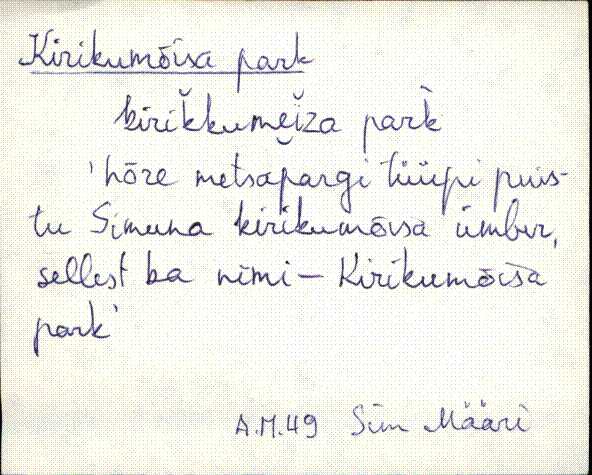 Kirikumõisa park
kirikkumẹiza park̀
'hõre metsapargi tüüpi puis-
tu Simuna kirikumõisa ümber,
sellest ka nimi — Kirikumõisa
park'
A.M.49 Sim Määri